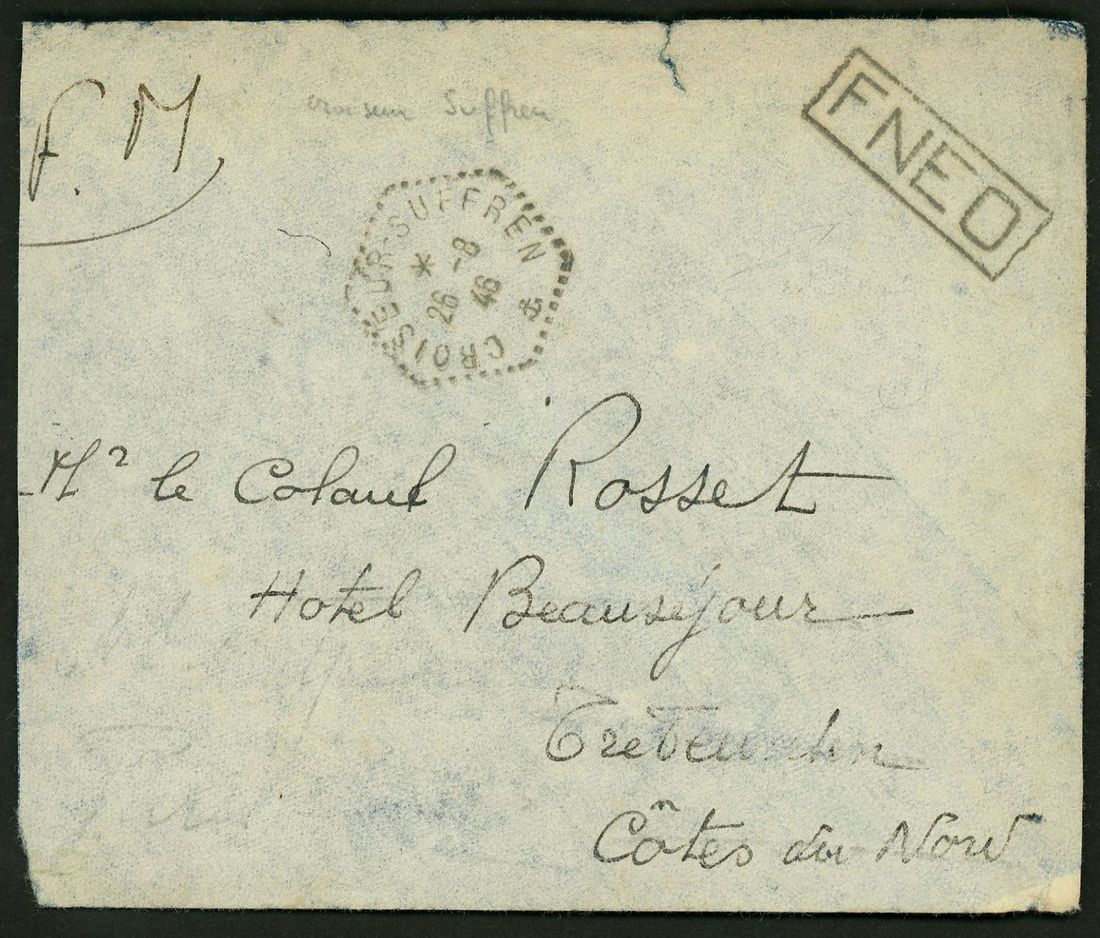 F. M
croiseur Suffren
FNEO
CROISEUR-SUFFREN
* 26 -8 46
Mr le Colonel Rosset
Hotel Beauséjour
Côtes du Nord